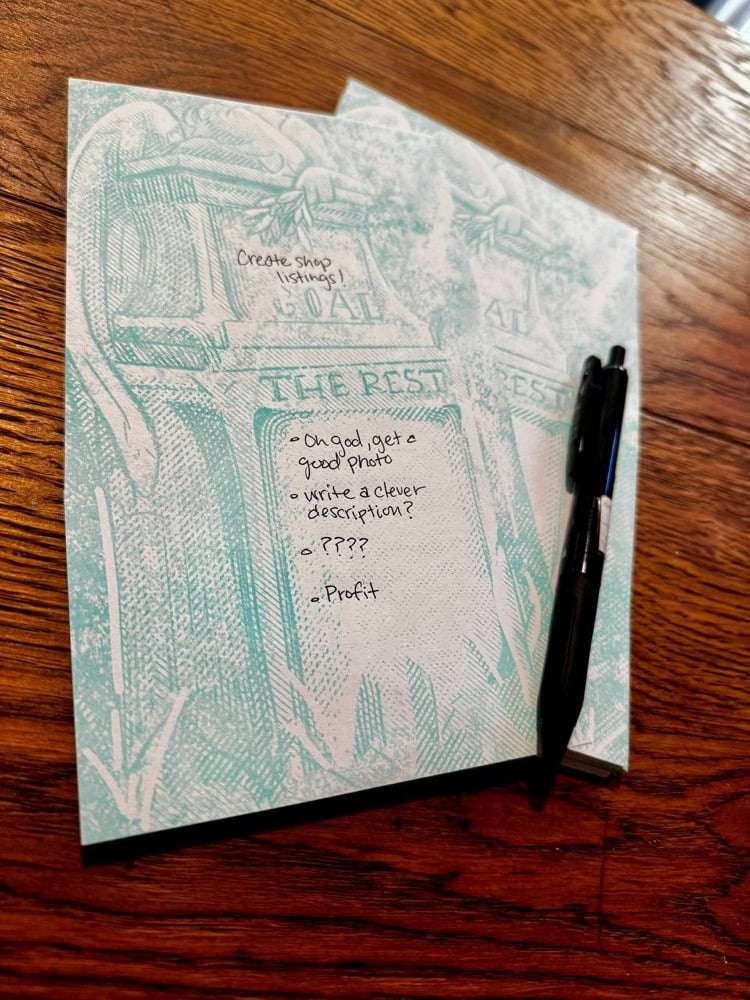 Create shop
listings!
GOAL
THE REST
• Oh god, get a
good photo
• write a clever
description?
• ????
• Profit
AL
REST